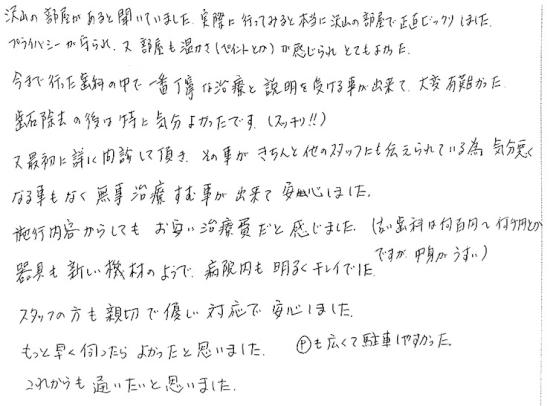 沢山の部屋があると聞いていました。実際に行ってみると本当に沢山の部屋で正直ビックリしました。
プライバシーが守られ、又部屋も温かさ(ペイントとか)が感じられとてもよかった。
今まで行った歯科の中で一番丁寧な治療と説明を受ける事が出来て、大変有難かった。
歯石除去の後は特に気分よかったです。(スッキリ!!)
又最初に詳しく問診して頂き、その事がきちんと他のスタッフにも伝えられている為、気分悪く
なる事もなく無事治療すむ事が出来て安心しました。
施行内容からしてもお安い治療費だと感じました。(安い歯科は何百円〜何千円とか
ですが、中身がうすい)
器具も新しい機材のようで、病院内も明るくキレイでした。
スタッフの方も親切で優しい対応で安心しました。
もっと早く伺ったらよかったと思いました。 Ⓟも広くて駐車しやすかった。
これからも通いたいと思いました。